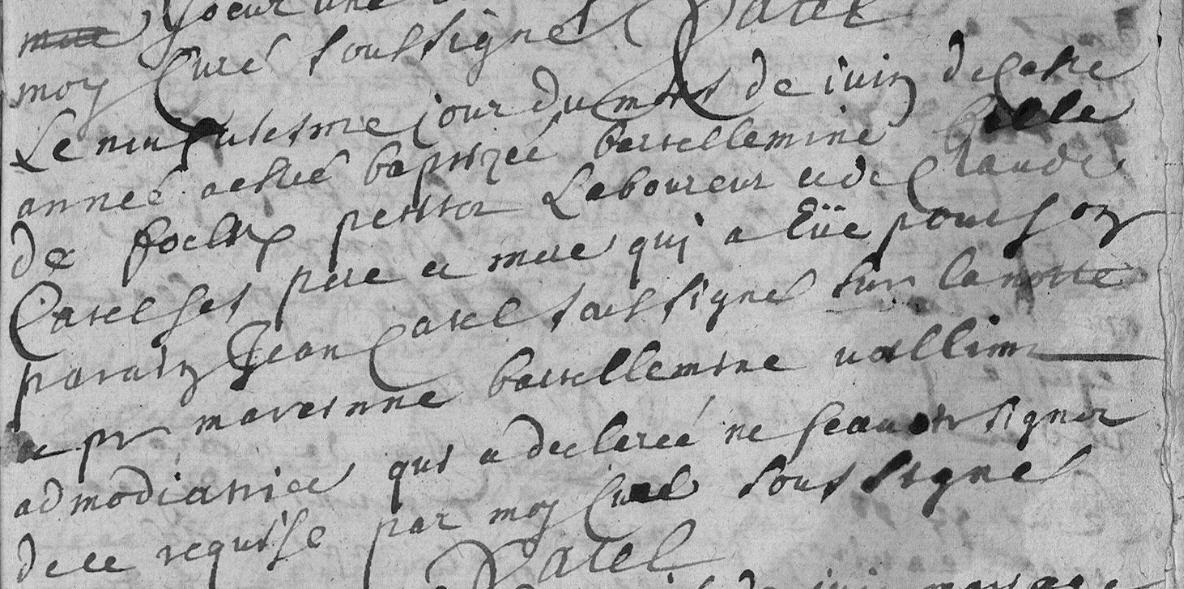 moy Curé soussigné Patel
Le neufviesme jour du mois de juin de ceste
année a esté baptizée bartellemine fille
de petitot Laboureur et de Claude
Catel ses pere et mere qui a Eüe pour son
parain Jean Catel soussigné sur la notte
et pr mareinne bartellemine vallim
admodiatrice qui a declareé ne scauoir signer
de ce requise par moy Curé soussigné
Patel